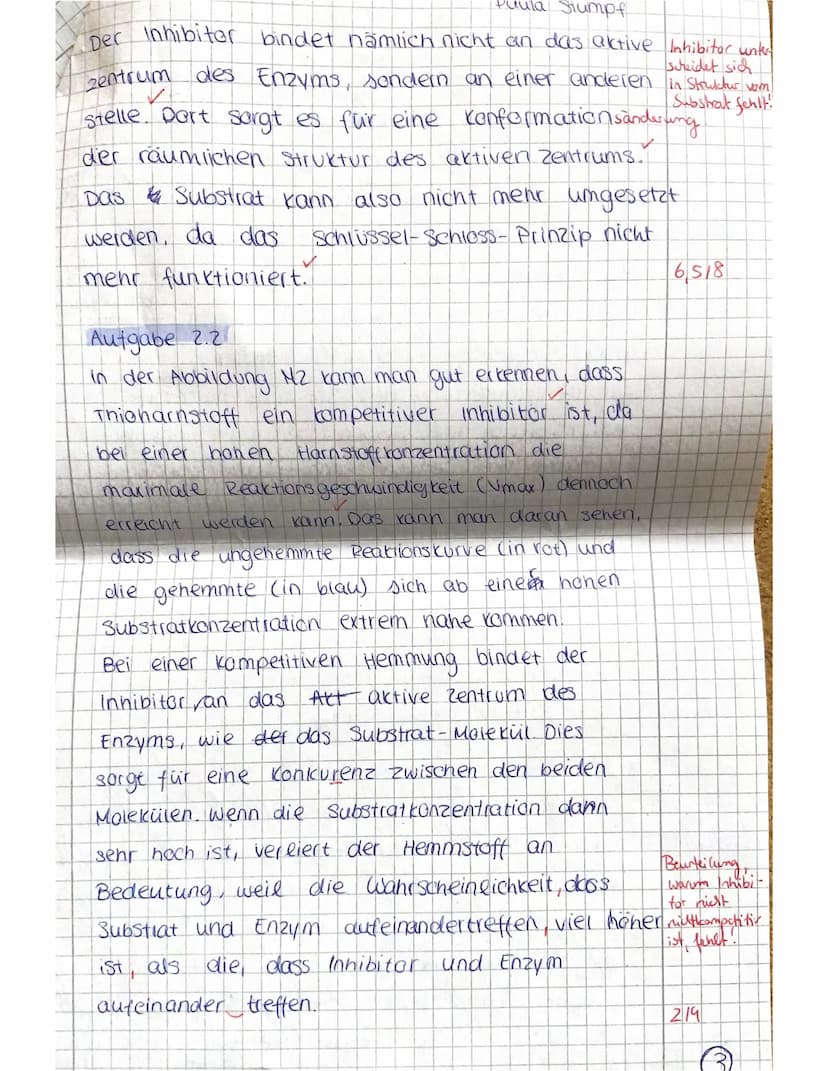 Paula Stumpf
Der Inhibitor bindet nämlich nicht an das aktive
zentrum des Enzyms, sondern an einer anderen
stelle. Dort sorgt es für eine Konformationsänderung
der räumlichen struktur des aktiven zentrums.
Das Substrat kann also nicht mehr umgesetzt
werden, da das Schlüssel-Schloss-Prinzip nicht
mehr funktioniert.
Inhibitor unter
scheidet sich
in Struktur vom
Substrat fehlt!
6,5/8
Aufgabe 2.2
in der Abbildung M2 kann man gut erkennen, dass
Thioharnstoff ein kompetitiver Inhibitor ist, da
bei einer hohen Harnstoffkonzentration die
maximale Reaktionsgeschwindigkeit (Vmax) dennoch
erreicht werden kann. Das kann man daran sehen,
dass die ungehemmte Reaktionskurve (in rot) und
die gehemmte (in blau) sich ab einer hohen
Substratkonzentration extrem nahe kommen.
Bei einer kompetitiven Hemmung bindet der
Inhibitor, an das Akt aktive zentrum des
Enzyms, wie der das Substrat-Molekül. Dies
sorgt für eine Konkurenz zwischen den beiden
Molekülen. wenn die Substratkonzentration dann
sehr hoch ist, verliert der Hemmstoff an
Bedeutung, weil die Wahrscheinlichkeit, dass
Substrat und Enzym aufeinandertreffen, viel höher
ist, als die, dass Inhibitor und Enzym
aufeinander treffen.
Beurteilung,
warum Inhibi-
tor nicht
nichtkompetitiv
ist, fehlt!
2/4
3